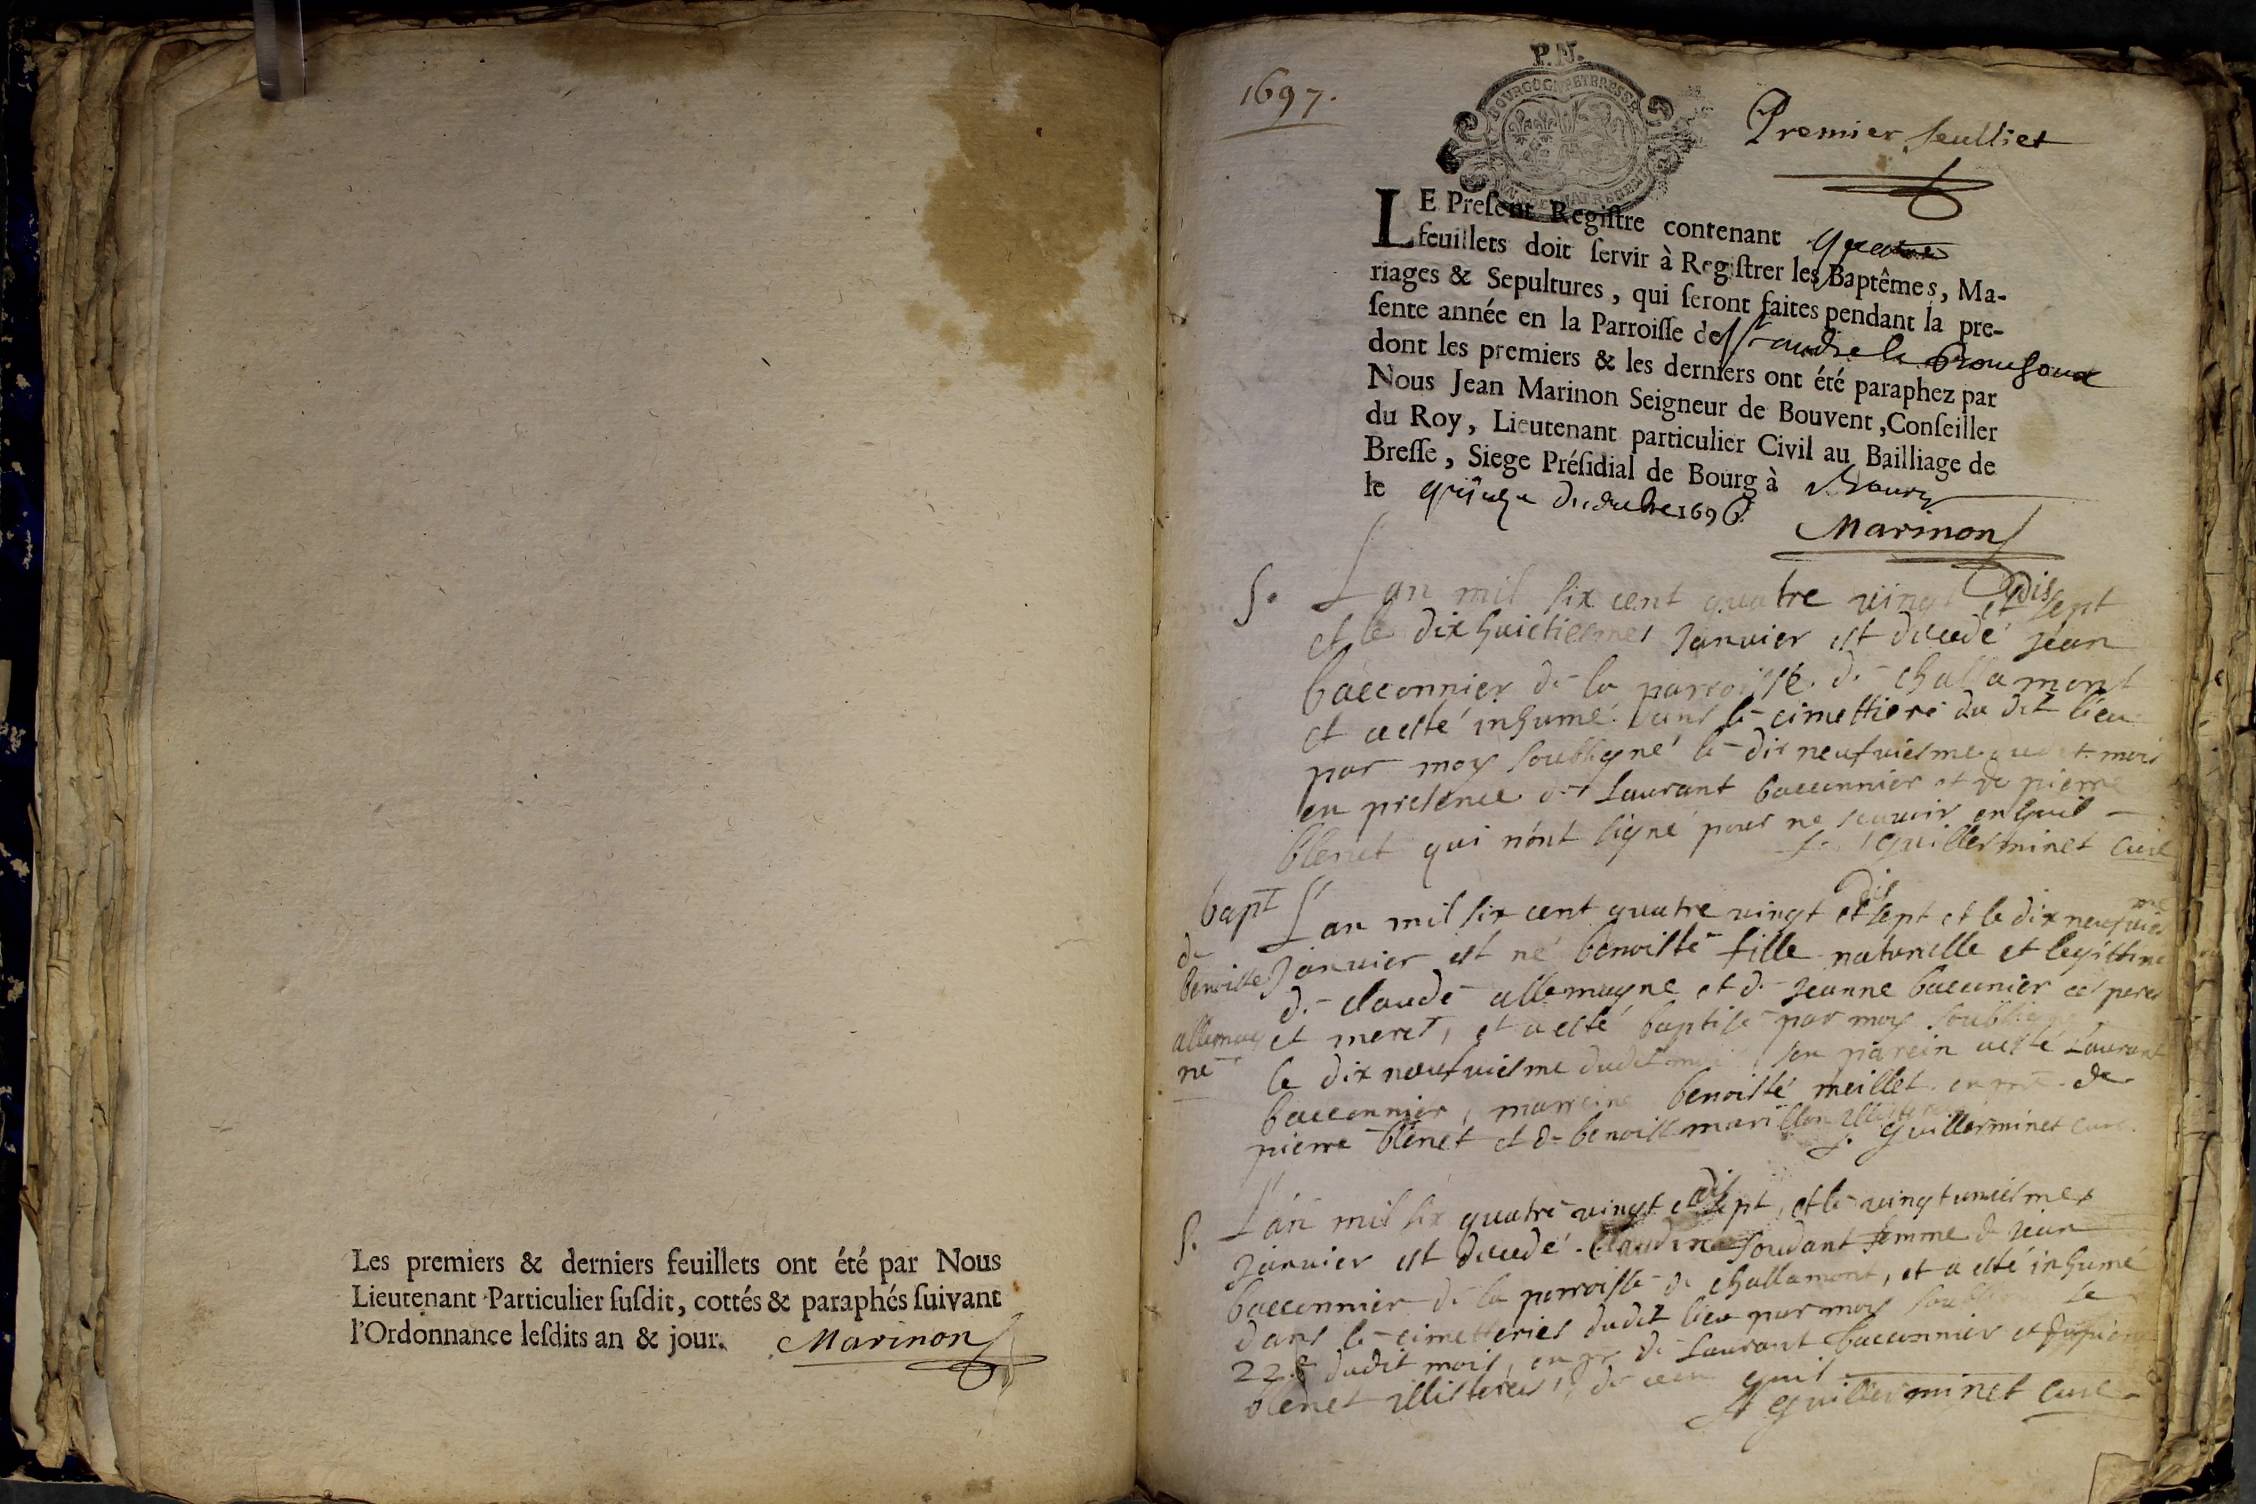 Les premiers & derniers feuillets ont été par Nous
Lieutenant Particulier ſuſdit, cottés & paraphés ſuivant
l'Ordonnance leſdits an & jour. Marinon
1697.
P. N.
BOURGOGNE ET BRESSE
Premier feulliet
LE Preſent Regiſtre contenant quatre
feuillets doit ſervir à Regiſtrer les Baptêmes, Ma-
riages & Sepultures, qui ſeront faites pendant la pre-
ſente année en la Parroiſſe de St andre le
dont les premiers & les derniers ont été paraphez par
Nous Jean Marinon Seigneur de Bouvent, Conſeiller
du Roy, Lieutenant particulier Civil au Bailliage de
Breſſe, Siege Préſidial de Bourg à Bourg
le 1696.
Marinon
S. L'an mil six cent quatre vingt et dis sept
et le dix huictiesmes Janvier est decedé jean
bacconnier de la parroisse de challamont
et a esté inhumé dans le cimettiere du dit lieu
par moy soubsigné le dis neufviesme dudit mois
en presence de Laurant bacconnier et de pierre
blenet qui n'ont signé pour ne scavoir enquis
Guillerminet Curé
bapt
de
benoiste
allemag
ne
L'an mil six cent quatre vingt et dis sept et le dix neufviesme
Janvier est né benoisté fille naturelle et legittime
de claude allemagne et de Jeanne bacconier ses peres
et meres, et a esté baptisé par moy soubsigné
le dix neufviesme dudit mois son parein a esté Laurant
bacconnier, marreine benoisté meillet de
pierre blenet et de benoist
Guillerminet curé.
S. L'an mil six quatre vingt et dis sept, et le vingt uniesmes
Janvier est decedé Claudine soudant femme de jean
bacconnier de la parroisse de challamont, et a esté inhumé
dans le cimetteries dudit lieu par moy soubsigné le
22 dudit mois, en de Laurant bacconnier et de pierre
blenet illisteres de ce enquis
Guillerminet Curé